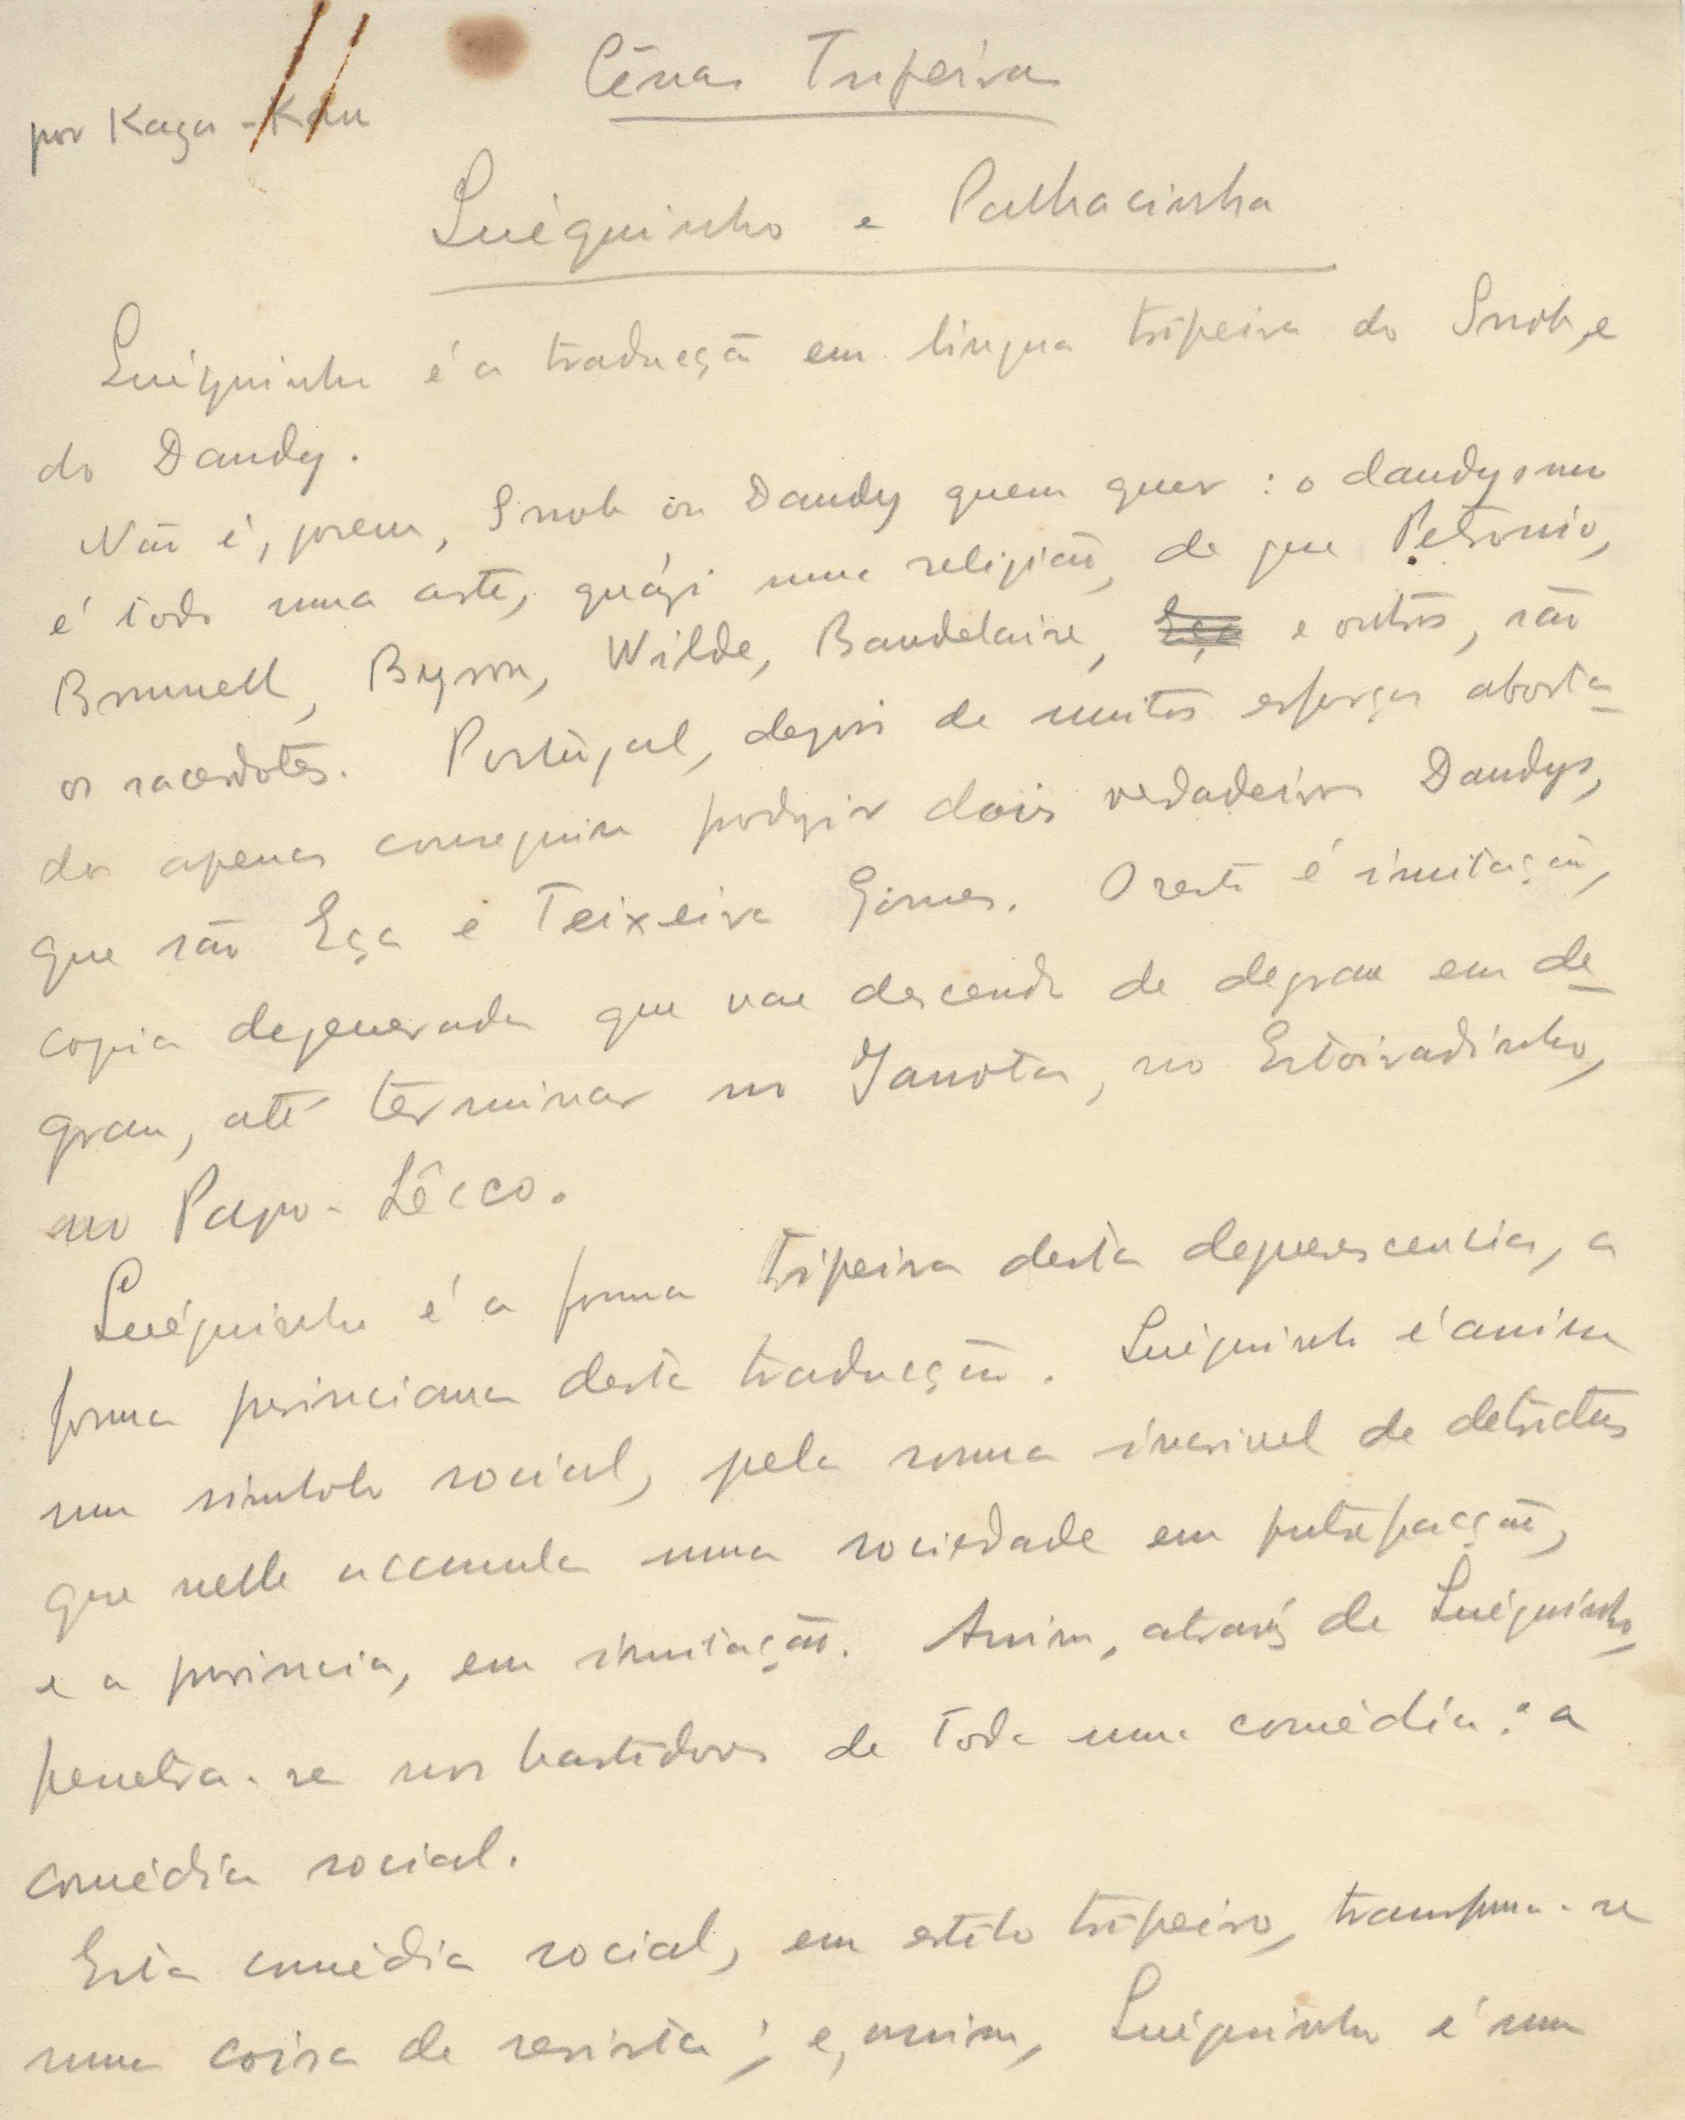 Cênas Tripeiras
por Kaga-Kau
Luéguinho e Palhacinha
Luéguinho é a traducção em lingua tripeira do Snob, e
do Dandy.
Não é, porem, Snob ou Dandy quem quer : o dandysmo
é todo uma arte, quási uma religião, de que Petronio,
Brummell, Byron, Wilde, Baudelaire, Eça e outros, são
os sacerdotes. Portugal, depois de muitos esforços aborta-
dos apenas conseguiu produzir dois verdadeiros Dandys,
que são Eça e Teixeira Gomes. O resto é imitação,
copia degenerada que vae descendo de degrau em de-
grau, até terminar no Janota, no Estoiradinho,
no Papo-Sêcco.
Luéguinho é a forma tripeira desta degenerescencia, a
forma provinciana desta traducção. Luéguinho é assim
um simbolo social, pela somma incrivel de detrictus
que nelle accumula uma sociedade em putrefacção,
e a provincia, em imitação. Assim, através de Luéguinho,
penetra-se nos bastidores de toda uma comédia : a
comédia social.
Esta comédia social, em estilo tripeiro, transforma-se
numa coisa de revista ; e, assim, Luéguinho é um